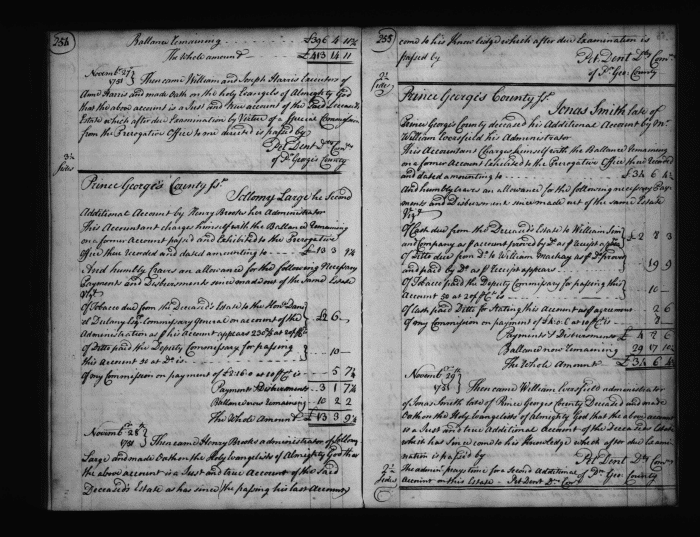 254
Ballance remaining £396 4 11½
The whole amount £413 14 11
Novemb.r 27th 1751 } Then came William and Joseph Harris Executors of
Ann Harris and made Oath on the holy Evangels of Almighty God
that the above account is a Just and true account of the Said Deceaseds
Estate which after due Examination by Virtue of a Special Commission
from the Prerogative Office to me directed is passed by
Pet Dent Dty Com.ry
of P. Geo.s County
3¼ sides
Prince George's County ss.t
Sollomy Large her Second
Additional Account by Henry Brooks her Administrator
This Accountant charges himself with the Ballance Remaining
on a former Account passed and Exhibited to the Prerogative
Office there recorded and dated amounting to £13 3 9¼
And humbly Craves an allowance for the following Necessary
Payments and Disbursements since made out of the Same Estate
Viz.t
Of Tobacco due from the Deceaseds Estate to the Hon.ble Dan.l
Dulany Esq.r Commissary General on account of the } £2 6 —
Administration as this Account appears
Of Ditto paid the Deputy Commissary for passing } 10 —
this Account
Of my Commission on payment of £2:16:0 at 10 P C.t is 5 7¼
Payments & Disbursements 3 1 7¼
Ballance now remaining 10 2 2
The Whole Amount £13 3 9¼
Novemb.r 28th 1751 } Then came Henry Brooks administrator of Sollomy
Large and made Oath on the Holy Evangelists of Almighty God that
the above account is a Just and true Account of the Said
Deceased's Estate as has since (the passing his last Account)
255
come to his Knowledge which after due Examination is
passed by Pet. Dent Dty Com.ry
of P. Geo: County
2½ sides
Prince George's County ss.t
Jonas Smith late of
Prince George's County deceased his Additional Account by Mr.
William Eversfield his Administrator
This Accountant Charges himself with the Ballance Remaining
on a former Account Exhibited to the Prerogative Office there Recorded
and dated amounting to £34 6 4½
And humbly craves an allowance for the following necessary Pay-
ments and Disbursements since made out of the same Estate
Viz.t
Of Cash due from the Deceaseds Estate to William
and Company as P account proved by D.o as P Receipt appears } £2 7 3
Of Ditto due from D.o to William Mackay as P D.o proved
and paid by D.o as P Receipt appears } 19 9
Of Tobacco paid the Deputy Commissary for passing this
Account 10 —
Of Cash paid Ditto for Stating this Account as P agreement 2 6
Of my Commission on payment of at 10 P C.t is
Payments & Disbursements £4 2 6
Ballance now Remaining 29 17 10½
The Whole Amount £34 6 4½
Novemb.r 29th 1751 } Then came William Eversfield administrator
of Jonas Smith late of Prince Georges County Deceased and made
Oath on the Holy Evangelists of Almighty God that the above account
is a Just and true Additional Account of the Deceaseds Estate
which has Since come to his Knowledge which after due Exami-
nation is passed by Pet Dent Dty Com.ry
of P. Geo: County
2½ sides
The admin.r prays time for a Second Additional
Account on this Estate - Pet Dent D.ty Com.ry